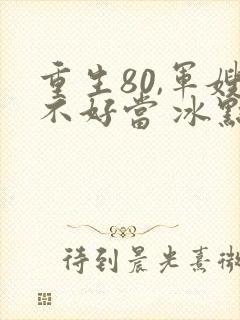 重生80,軍嫂
不好當 冰點
待到晨光熹微